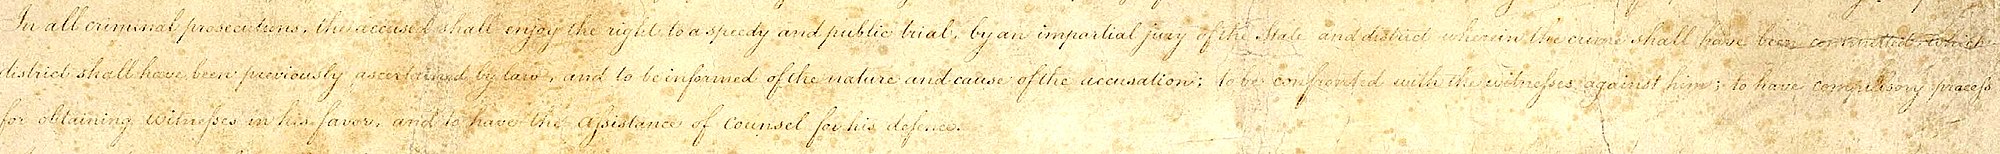 In all criminal prosecutions, the accused shall enjoy the right to a speedy and public trial, by an impartial jury of the State and district wherein the crime shall have been committed, which
district shall have been previously ascertained by law, and to be informed of the nature and cause of the accusation; to be confronted with the witnesses against him; to have compulsory process
for obtaining witnesses in his favor, and to have the assistance of counsel for his defence.